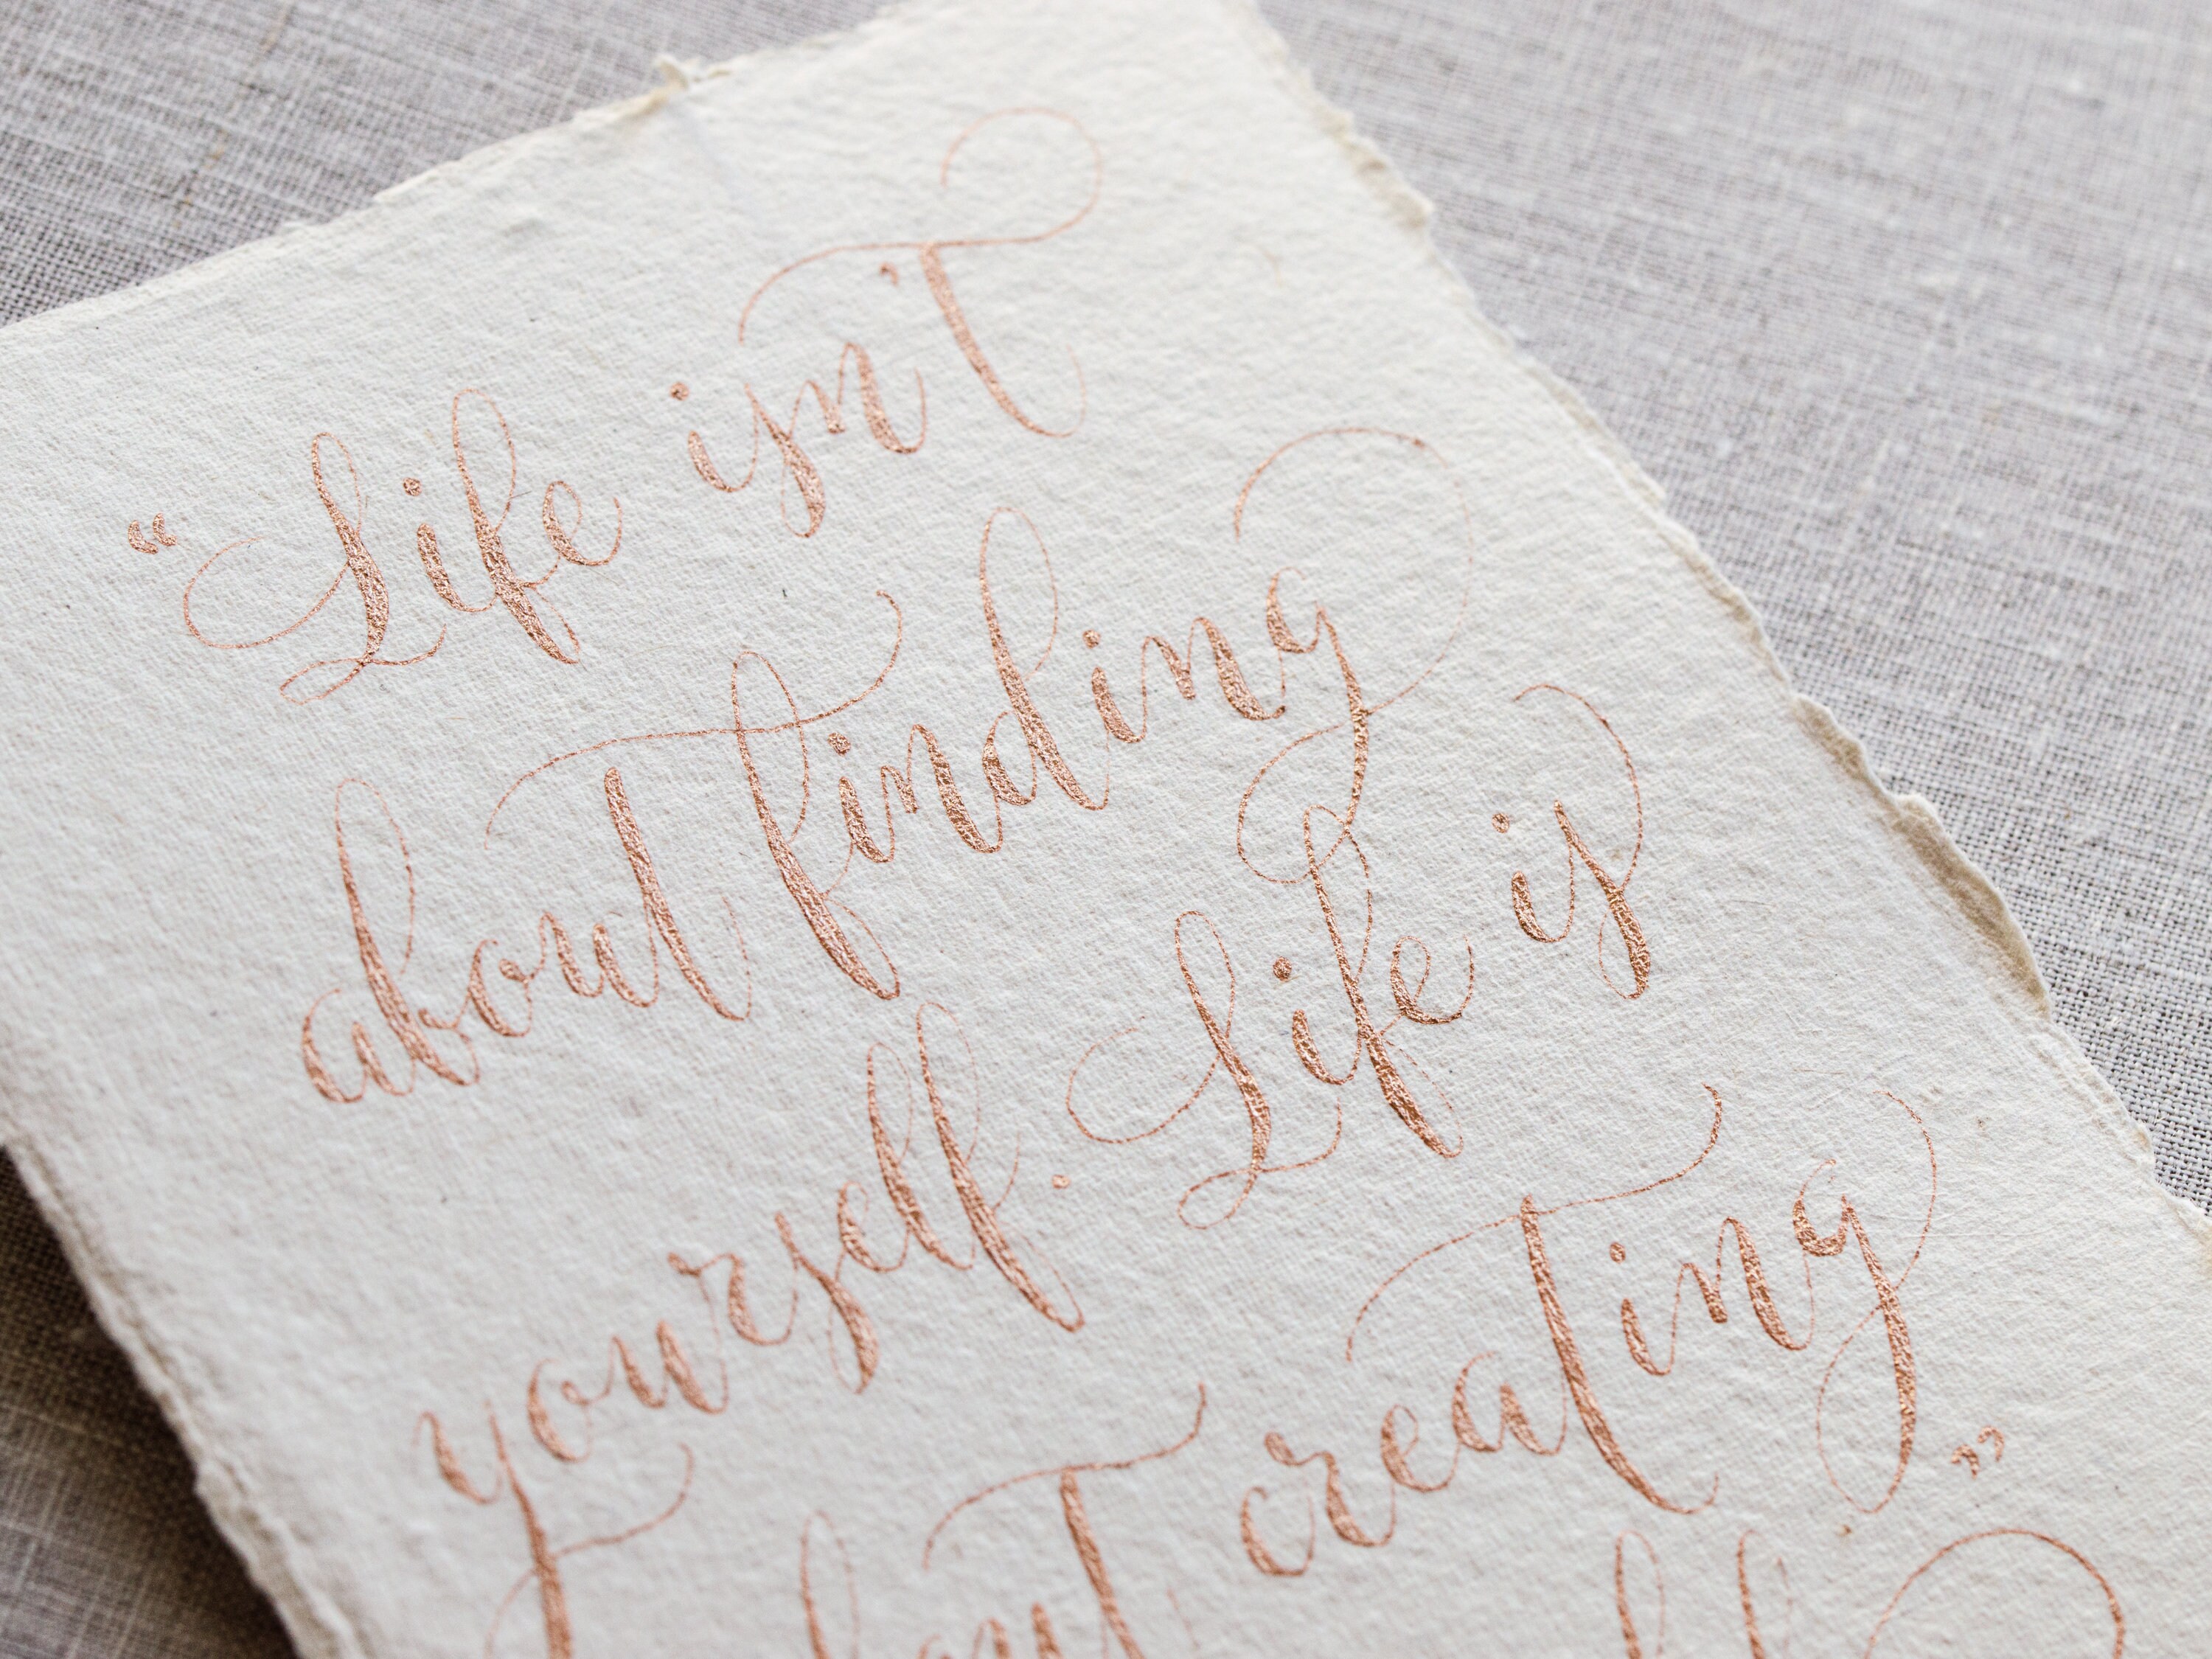 “Life isn't
about finding
yourself. Life is
about creating
”